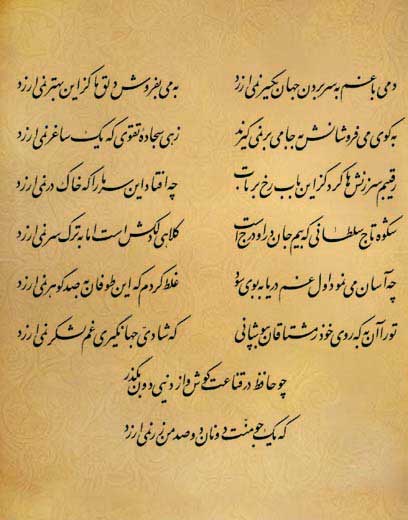 دمی با غم به سر بردن جهان یکسر نمی‌ارزد به می بفروش دلق ما کز این بهتر نمی‌ارزد
به کوی می فروشانش به جامی بر نمی‌گیرند زهی سجاده تقوی که یک ساغر نمی‌ارزد
رقیبم سرزنش‌ها کرد کز این باب رخ برتاب چه افتاد این سر ما را که خاک در نمی‌ارزد
شکوه تاج سلطانی که بیم جان در او درج است کلاهی دلکش است اما به ترک سر نمی‌ارزد
چه آسان می‌نمود اول غم دریا به بوی سود غلط کردم که این طوفان به صد گوهر نمی‌ارزد
تو را آن به که روی خود ز مشتاقان بپوشانی که شادی جهانگیری غم لشکر نمی‌ارزد
چو حافظ در قناعت کوش و از دنیی دون بگذر
که یک جو منت دونان دو صد من زر نمی‌ارزد